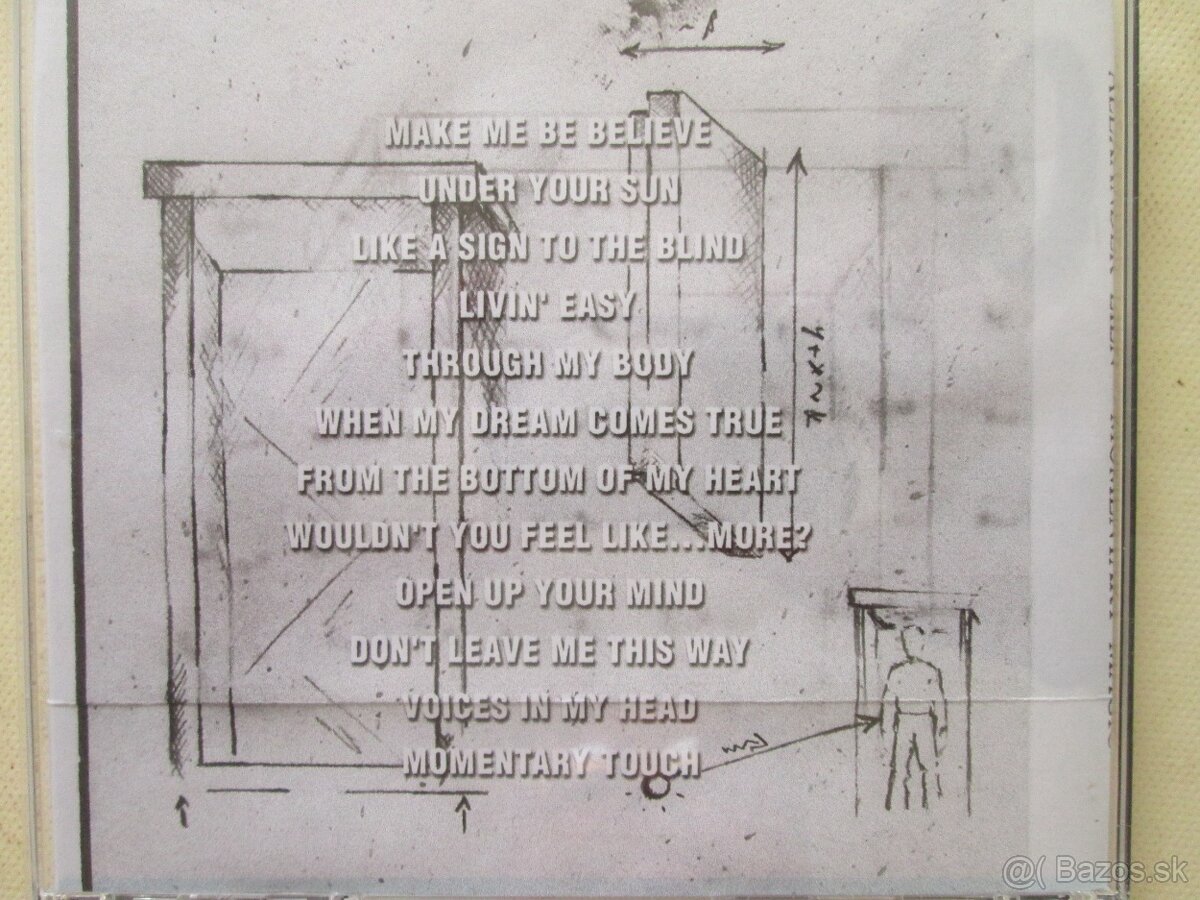 MAKE ME BE BELIEVE
UNDER YOUR SUN
LIKE A SIGN TO THE BLIND
LIVIN' EASY
THROUGH MY BODY
WHEN MY DREAM COMES TRUE
FROM THE BOTTOM OF MY HEART
WOULDN'T YOU FEEL LIKE...MORE?
OPEN UP YOUR MIND
DON'T LEAVE ME THIS WAY
VOICES IN MY HEAD
MOMENTARY TOUCH
@( Bazos.sk